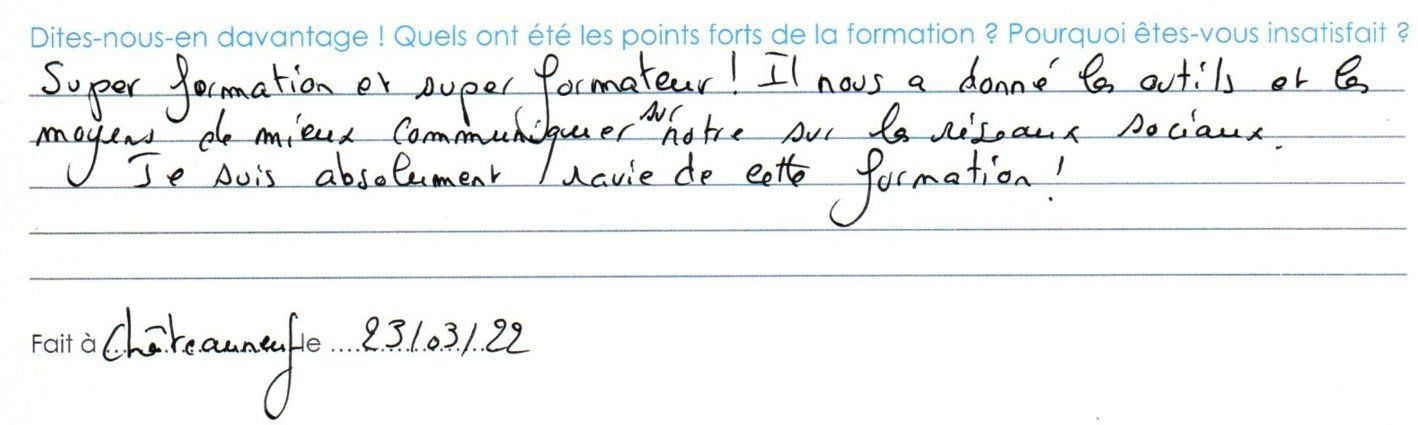 Dites-nous-en davantage ! Quels ont été les points forts de la formation ? Pourquoi êtes-vous insatisfait ?
Super formation et super formateur ! Il nous a donné les outils et les
moyens de mieux communiquer sur notre sur les réseaux sociaux.
Je suis absolument ravie de cette formation !
Fait à Châteauneuf le 23/03/22